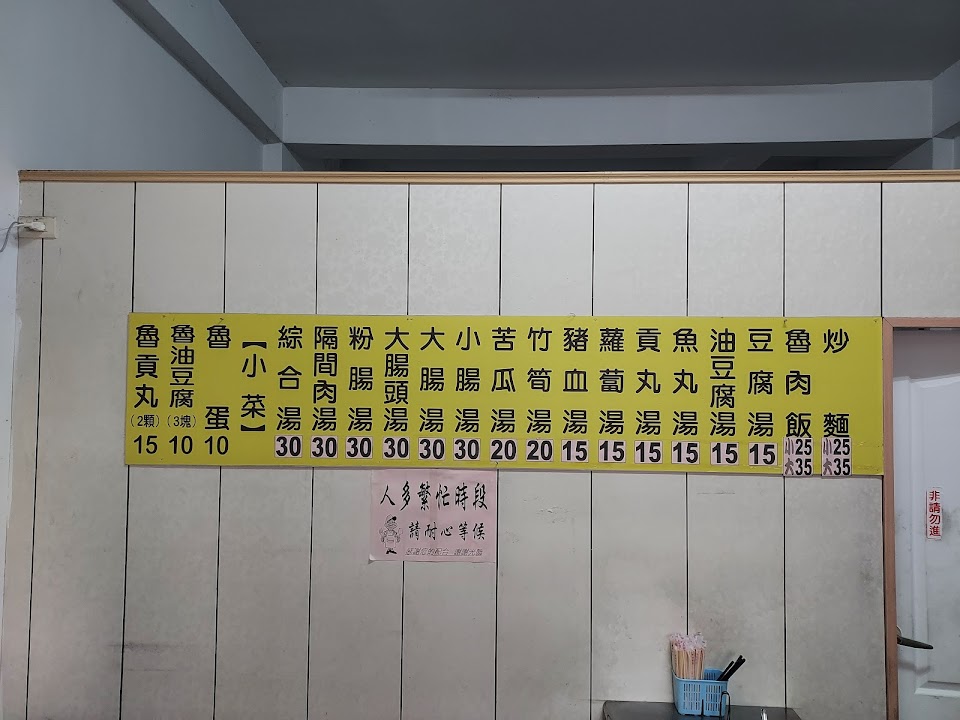 炒麵 小25 大35
魯肉飯 小25 大35
豆腐湯 15
油豆腐湯 15
魚丸湯 15
貢丸湯 15
蘿蔔湯 15
豬血湯 15
竹筍湯 20
苦瓜湯 20
小腸湯 30
大腸湯 30
大腸頭湯 30
粉腸湯 30
隔間肉湯 30
綜合湯 30
【小菜】
魯蛋 10
魯油豆腐(3塊) 10
魯貢丸(2顆) 15
人多繁忙時段
請耐心等候
感謝您的配合 謝謝光臨
非請勿進